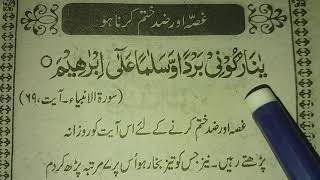 غصّہ اور ضد ختم کرنا ہو
يٰنَارُ كُوْنِيْ بَرْدًا وَّسَلٰمًا عَلٰٓى اِبْرٰهِيْمَ ○
(سورۃ الانبیاء۔ آیت، ۶۹)
غصہ اور ضد ختم کرنے کے لئے اس آیت کو روزانہ
پڑھتے رہیں۔ نیز جس کو تیز بخار ہو اُس پر ۷ مرتبہ پڑھ کر دم